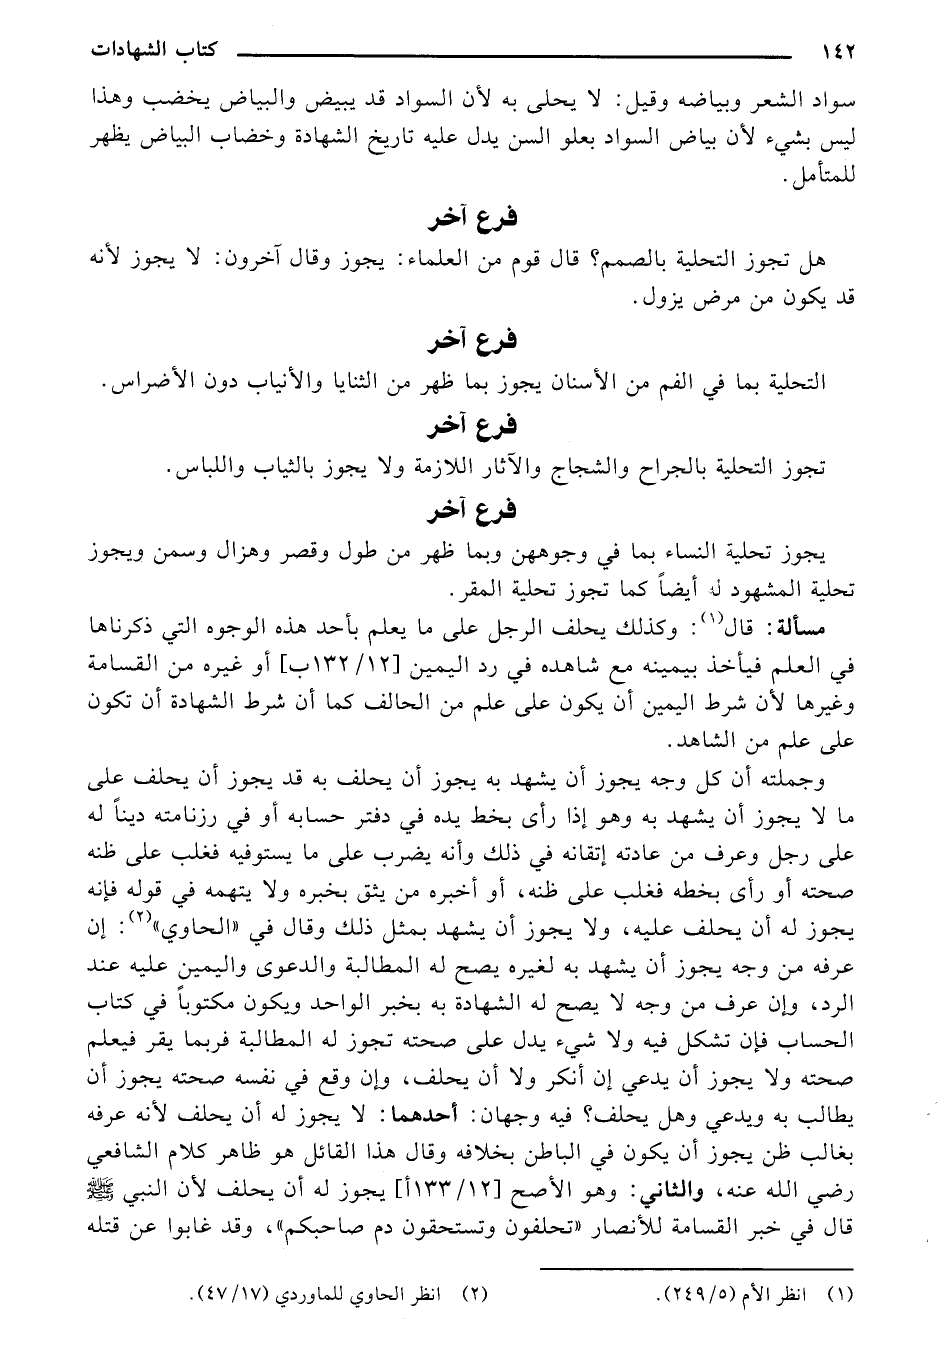 ١٤٢ كتاب الشهادات
سواد الشعر وبياضه وقيل: لا يحلى به لأن السواد قد يبيض والبياض يخضب وهذا
ليس بشيء لأن بياض السواد بعلو السن يدل عليه تاريخ الشهادة وخضاب البياض يظهر
للمتأمل.
فرع آخر
هل تجوز التحلية بالصمم؟ قال قوم من العلماء: يجوز وقال آخرون: لا يجوز لأنه
قد يكون من مرض يزول.
فرع آخر
التحلية بما في الفم من الأسنان يجوز بما ظهر من الثنايا والأنياب دون الأضراس.
فرع آخر
تجوز التحلية بالجراح والشجاج والآثار اللازمة ولا يجوز بالثياب واللباس.
فرع آخر
يجوز تحلية النساء بما في وجوههن وبما ظهر من طول وقصر وهزال وسمن ويجوز
تحلية المشهود له أيضاً كما تجوز تحلية المقر.
مسألة: قال(١): وكذلك يحلف الرجل على ما يعلم بأحد هذه الوجوه التي ذكرناها
في العلم فيأخذ بيمينه مع شاهده في رد اليمين [١٢/ ١٣٢ب] أو غيره من القسامة
وغيرها لأن شرط اليمين أن يكون على علم من الحالف كما أن شرط الشهادة أن تكون
على علم من الشاهد.
وجملته أن كل وجه يجوز أن يشهد به يجوز أن يحلف به قد يجوز أن يحلف على
ما لا يجوز أن يشهد به وهو إذا رأى بخط يده في دفتر حسابه أو في رزنامته ديناً له
على رجل وعرف من عادته إتقانه في ذلك وأنه يضرب على ما يستوفيه فغلب على ظنه
صحته أو رأى بخطه فغلب على ظنه، أو أخبره من يثق بخبره ولا يتهمه في قوله فإنه
يجوز له أن يحلف عليه، ولا يجوز أن يشهد بمثل ذلك وقال في «الحاوي»(٢): إن
عرفه من وجه يجوز أن يشهد به لغيره يصح له المطالبة والدعوى واليمين عليه عند
الرد، وإن عرف من وجه لا يصح له الشهادة به بخبر الواحد ويكون مكتوباً في كتاب
الحساب فإن تشكل فيه ولا شيء يدل على صحته تجوز له المطالبة فربما يقر فيعلم
صحته ولا يجوز أن يدعي إن أنكر ولا أن يحلف، وإن وقع في نفسه صحته يجوز أن
يطالب به ويدعي وهل يحلف؟ فيه وجهان: أحدهما: لا يجوز له أن يحلف لأنه عرفه
بغالب ظن يجوز أن يكون في الباطن بخلافه وقال هذا القائل هو ظاهر كلام الشافعي
رضي الله عنه، والثاني: وهو الأصح [١٢/ ١٣٣أ] يجوز له أن يحلف لأن النبي ﷺ
قال في خبر القسامة للأنصار «تحلفون وتستحقون دم صاحبكم»، وقد غابوا عن قتله
(١) انظر الأم (٢٤٩/٥). (٢) انظر الحاوي للماوردي (٤٧/١٧).